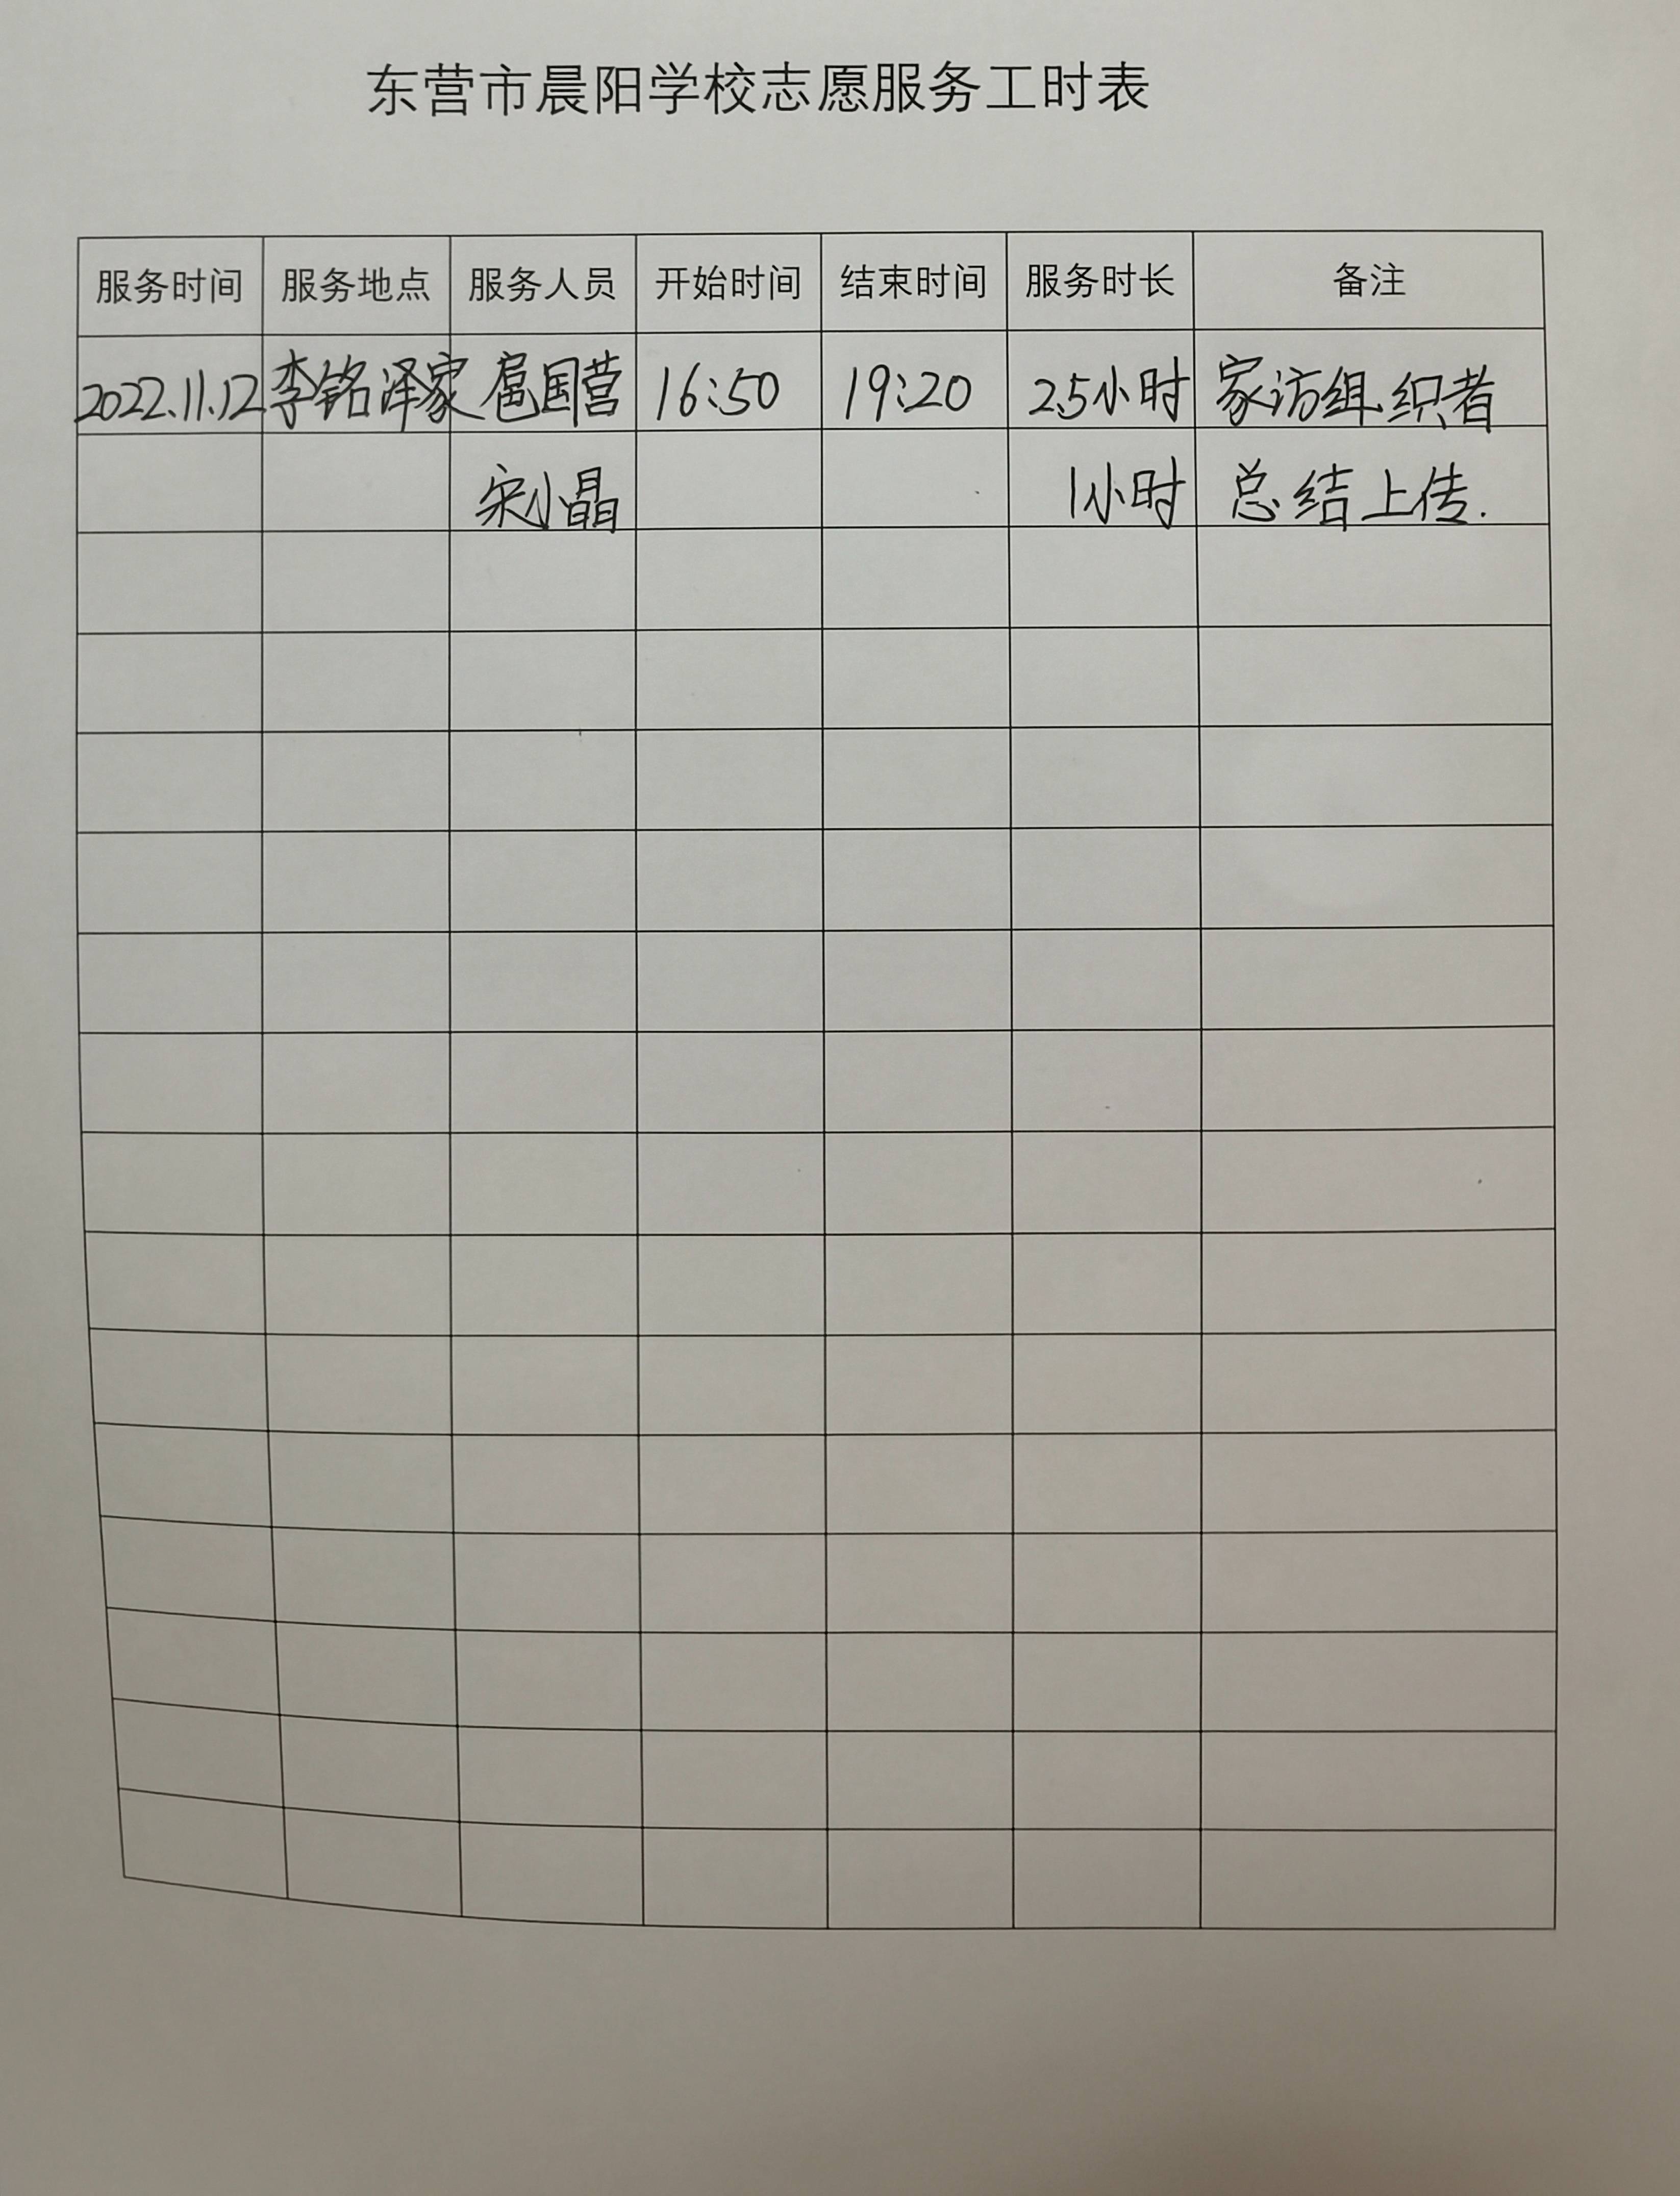 东营市晨阳学校志愿服务工时表
服务时间 服务地点 服务人员 开始时间 结束时间 服务时长 备注
2022.11.12 李铭泽家 扈国营 16:50 19:20 2.5小时 家访组织者
宋小晶 1小时 总结上传.